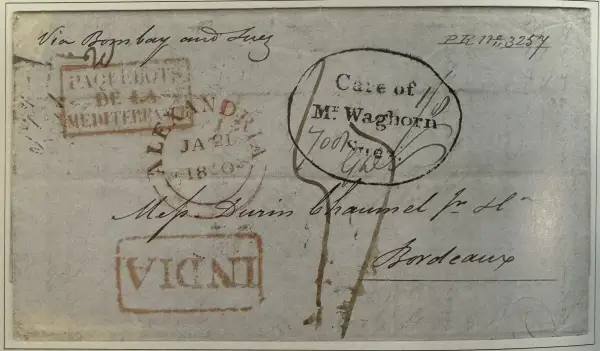 Via Bombay and Suez
PR No. 3257
PAQUEBOTS
DE LA
MEDITERRA
ALEXANDRIA
JA 21
Care of
Mr. Waghorn
Suez
Mess. Durin Chaumel Jr. &
Bordeaux
INDIA